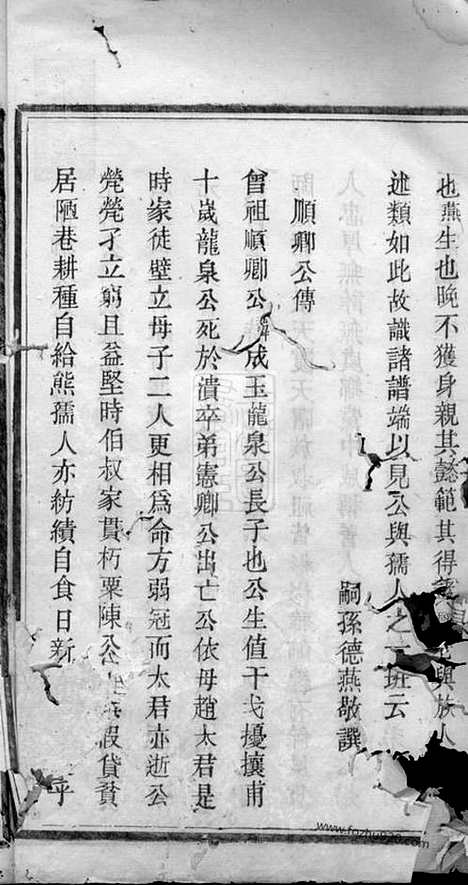 也燕生也晚不獲身親其懿範其得與族人
述類如此故識諸譜端以見公與孺人之一班云
嗣孫德燕敬譔
順卿公傳
曾祖順卿公諱成玉龍泉公長子也公生值干戈擾攘甫
十歲龍泉公死於潰卒弟憲卿公出亡公依母趙太君是
時家徒壁立母子二人更相爲命方弱冠而太君亦逝公
煢煢孑立窮且益堅時伯叔家貫朽粟陳公假貸貲
居陋巷耕種自給熊孺人亦紡績自食日新
www.fozhuge.com